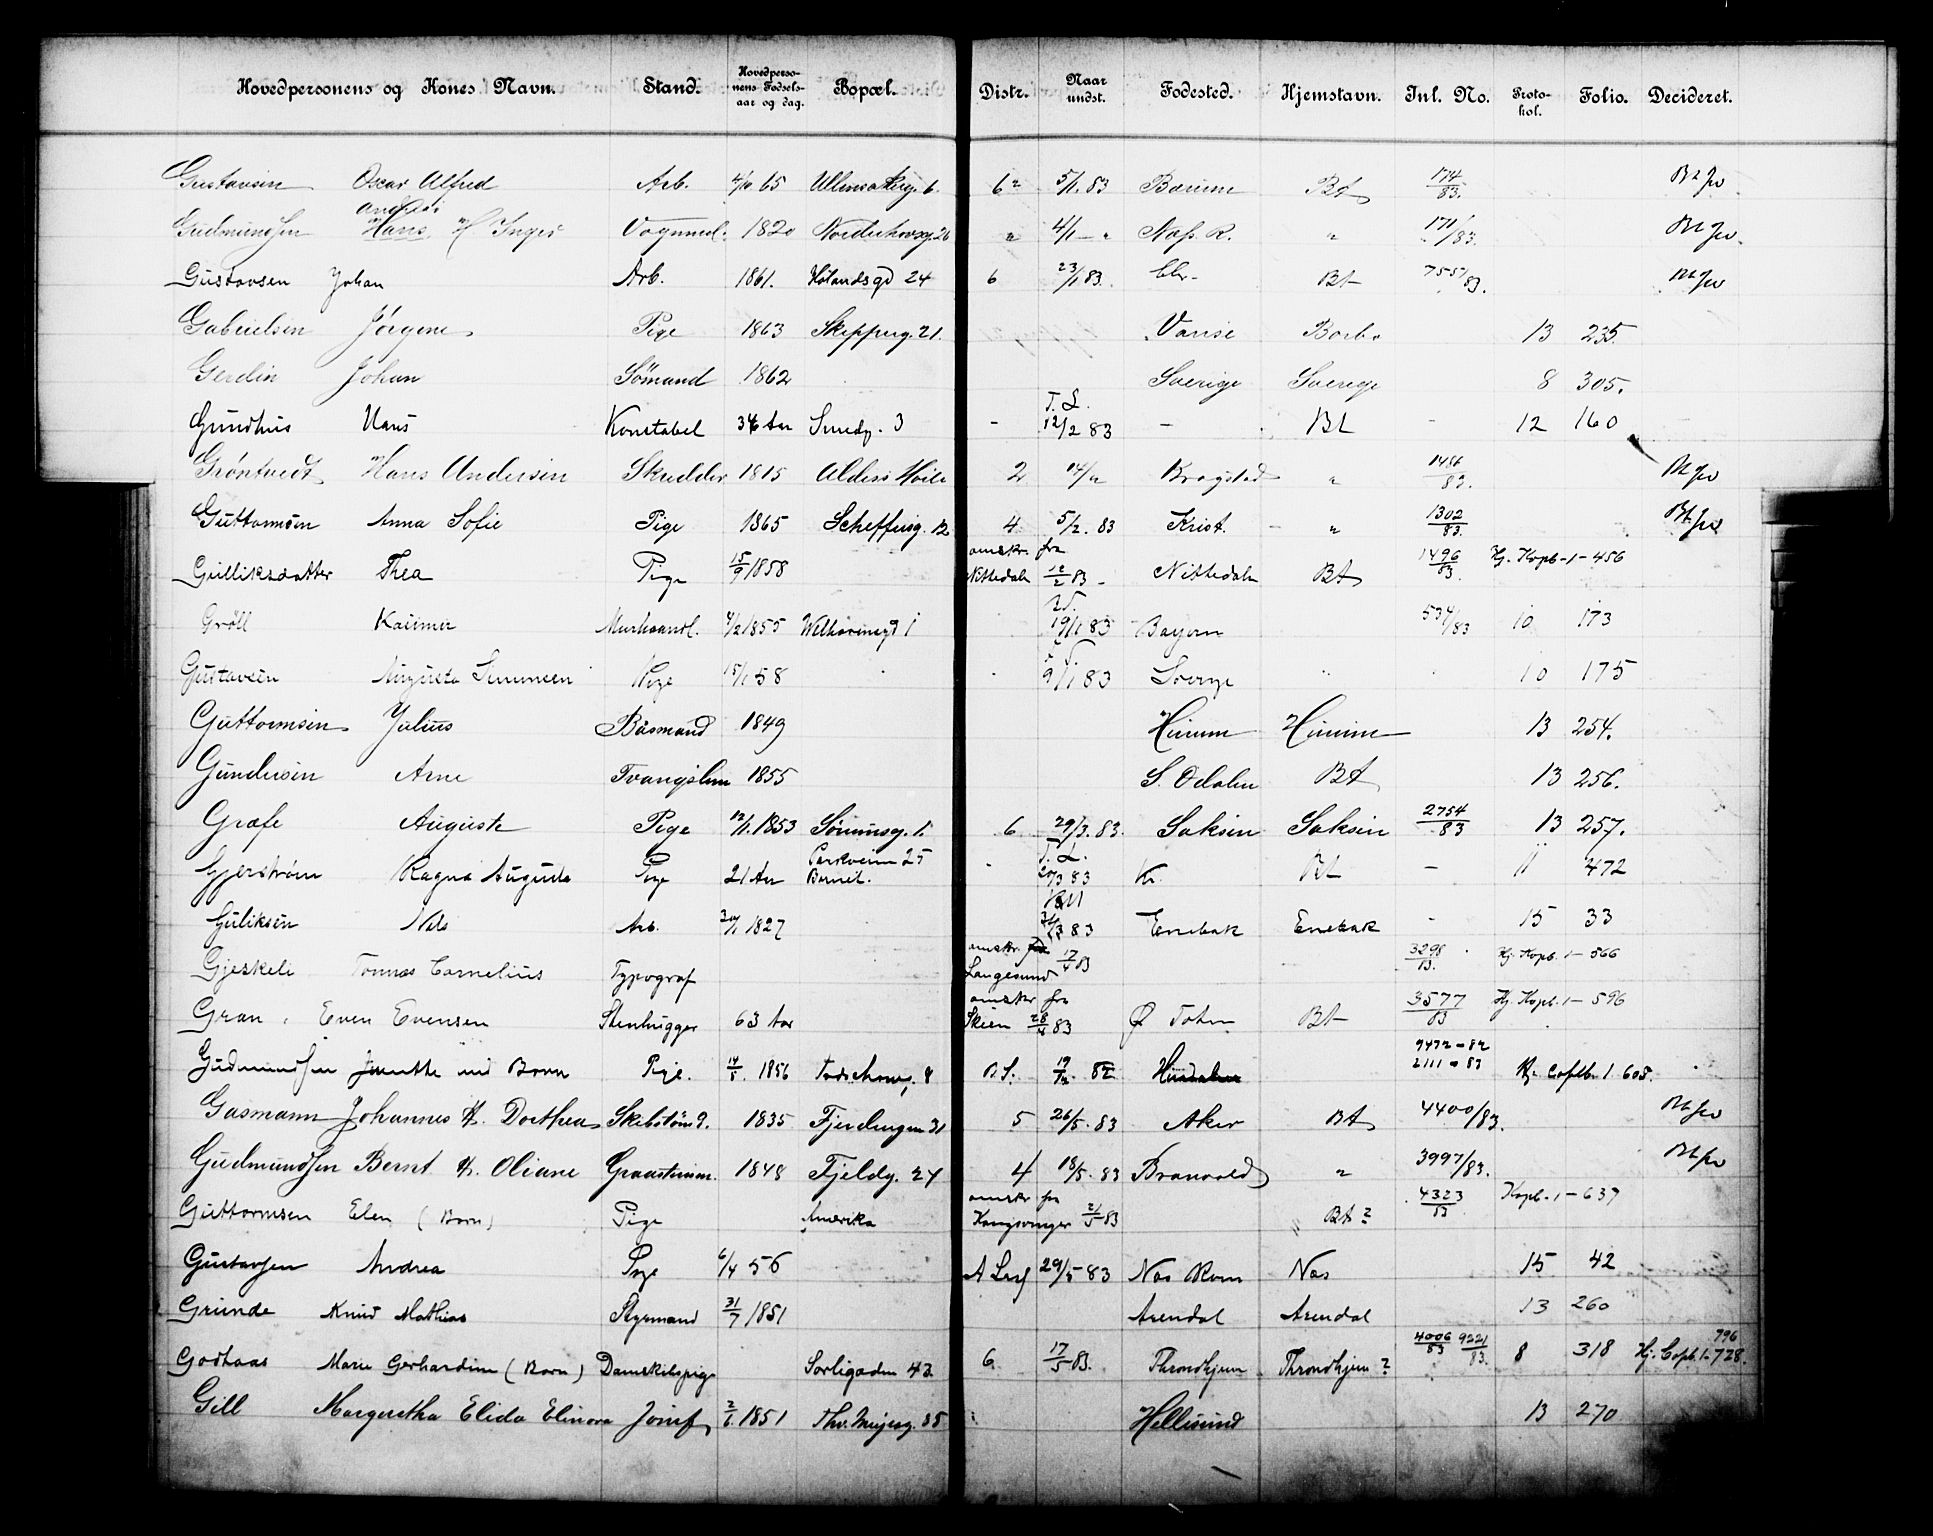 Hovedpersonens og Kones Navn. Stand. Hovedpersonens Fødselsaar og dag. Bopæl. Distr. Naar undst. Fødested. Hjemstavn. Inl. No. Protokol. Folio. Decideret.
Gustavsen Oscar Alfred Arb. 65 6 5/1 83 Bærum Bt 174/83.
Gudmundsen Hans H Inger 1820 4/1 Næs R. 171/83.
Gustavsen Johan Arb. 1861. Hølandsgd 24 6 23/1 83. Chr. Bt 755/83.
Gabrielsen Jörgine Pige 1863 Skipperg. 21. Vanse Borb. 13 235.
Gerdin Johan Sömand 1862 Sverige Sverige 8 305.
Gundhus Hans Konstabel Smedg. 3 - T. L. 12/2 83 - Bt - 12 160
Gröntvedt Hans Andersen Skrædder 1815 2 14/2 Kragstad " 1486/83.
Guttormsen Anna Sofie Pige 1865 Scheffersg. 12 4 5/2. 83 Krist. - " 1302/83
Gulliksdatter Thea Pige 15/9 1858 amskr. fra Nittedale 12/2 83 - Nittedalen Bt 1496/83. Hj. Kopb-1-456
Gröll Kasimer Murhaandl. 4/2 1855 Welhavensgd 1 19/1 83 Bayern 534/83 10 173
Gustavsen Augusta Simonsen Pige 15/1 58 9/1 83 Sverge 10 175
Guttormsen Julius Baasmand 1849 Hurum Hurum 13 254.
Gundersen Arne Tvangslem 1855 S. Odalen Bt 13 256.
Grafe Auguste Pige 12/1. 1853 Sörumsg. 1. 6 29/3. 83. Saksen Saksen 2754/83 13 257.
Gjerström Ragna Augusta Pige 21 Aar Parkveien 25 T. L. 20/3 83 Kr. Bt - 11 472
Guliksen Nils Arb. 30/1 1827 31/3 83 Enebak Enebak - 15 33
Gjeskeli Tonnes Cornelius Typograf amskr. fra Langesund 17/4 83 3298/83. Hj. Kopb. 1-566
Gran, Even Evensen Stenhugger 63 Aar amskr fra Skien 28/4 83 Ø Toten Bt 3577/83 Hj. Kopb. 1-596
Gudmundsen Jeanette med Barn Pige. 14/8. 1856 B.S. 19/12. 82 Hurdalen 9472-82 2111-83 Hj. Copb. 1. 608.
Gasmann Johannes H. Dorthea Skibstöm. 1835 Fjerdingen 31 5 26/5. 83 Aker Bt 4400/83.
Gudmundsen Bernt H. Oliane Graastensm. 1848 Fjeldg. 24 4 18/5. 83 Branvold " 3997/83.
Guttormsen Elen (Barn) Pige Amerika amskr fra Kongsvinger 21/5 83 " Bt? 4323/83 Kopb. 1-637
Gustavsen Andrea Pige 6/4 56 29/5 83 Næs Rom Næs 15 42
Grunde Knud Mathias Styrmand 31/7 1851 Arendal Arendal 13 260
Godtaas Marie Gerhardine (Barn) Damskibspige Sorligaden 43. 6 17/5 83. Throndhjem Throndhjem? 4006/83 9221/83. 8 318 Hj. Copb. 1-728. 796
Gill Margretha Elida Elinora Jomf 2/6. 1851 Thv. Meyersg. 85 Hellesund 13 270